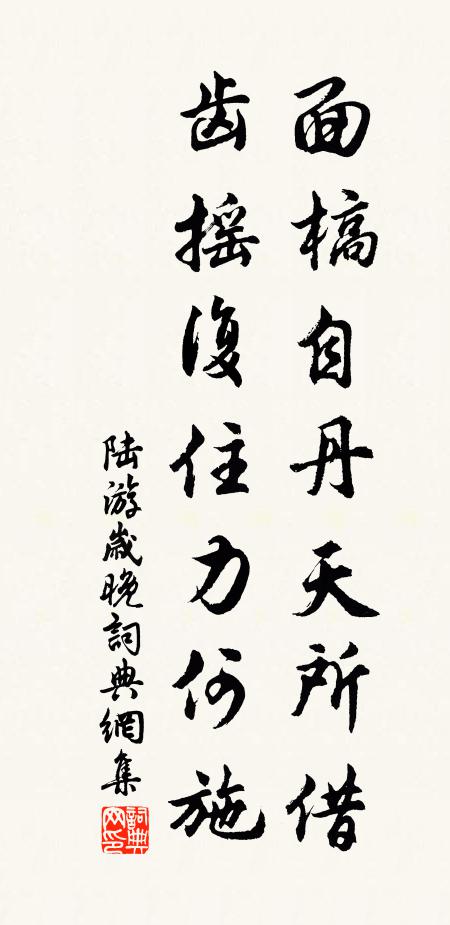 面槁自丹天所借
齿摇復住力何施
陆游歲晚詞典網集
詞典网印